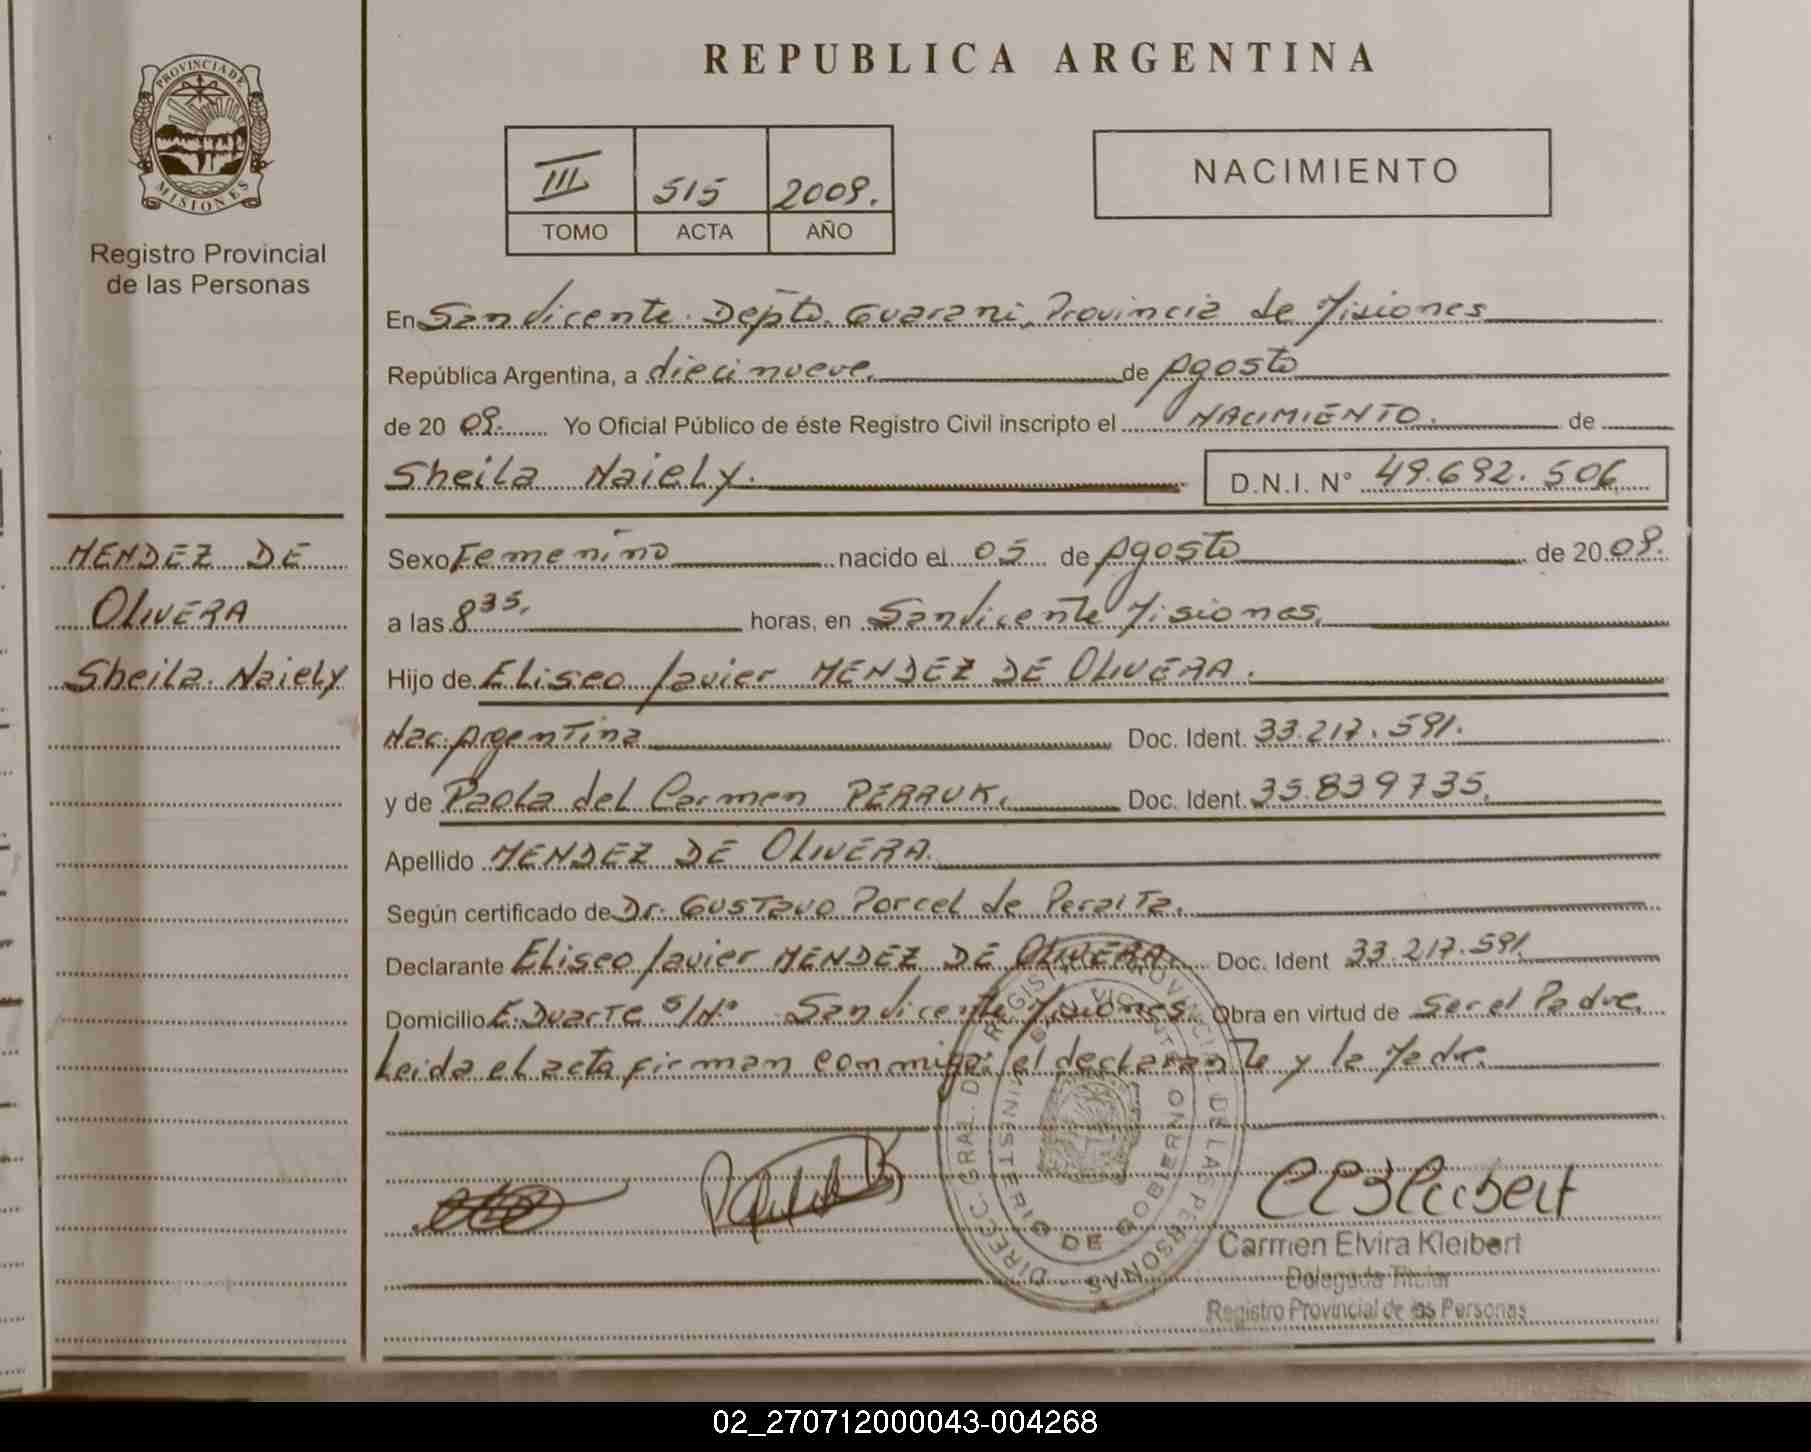 PROVINCIA DE
MISIONES
Registro Provincial
de las Personas
MENDEZ DE
OLIVERA
Sheila Naiely
REPUBLICA ARGENTINA
III 515 2009.
TOMO ACTA AÑO
NACIMIENTO
En San Vicente. Depto. Guarani, Provincia de Misiones
República Argentina, a diecinueve. de Agosto
de 20 09. Yo Oficial Público de éste Registro Civil inscripto el NACIMIENTO. de
Sheila Naiely. D.N.I. N° 49.692.506
Sexo Femenino nacido el 05 de Agosto de 20 09.
a las 8 35. horas, en San Vicente Misiones.
Hijo de Eliseo Javier MENDEZ DE OLIVERA.
Nac. Argentina Doc. Ident. 33.217.591.
y de Paola del Carmen PERRUK. Doc. Ident. 35.839735.
Apellido MENDEZ DE OLIVERA.
Según certificado de Dr. Gustavo Porcel de Peralta.
Declarante Eliseo Javier MENDEZ DE OLIVERA. Doc. Ident 33.217.591.
Domicilio E. Duarte S/N° San Vicente Misiones. Obra en virtud de Ser el Padre.
Leida el acta firman conmigo: el declarante y la Madre.
DIRECC. GRAL. DE REGISTRO PROVINCIAL DE LAS PERSONAS
MINISTERIO DE GOBIERNO
Carmen Elvira Kleibert
Delegada Titular
Registro Provincial de las Personas
02_270712000043-004268